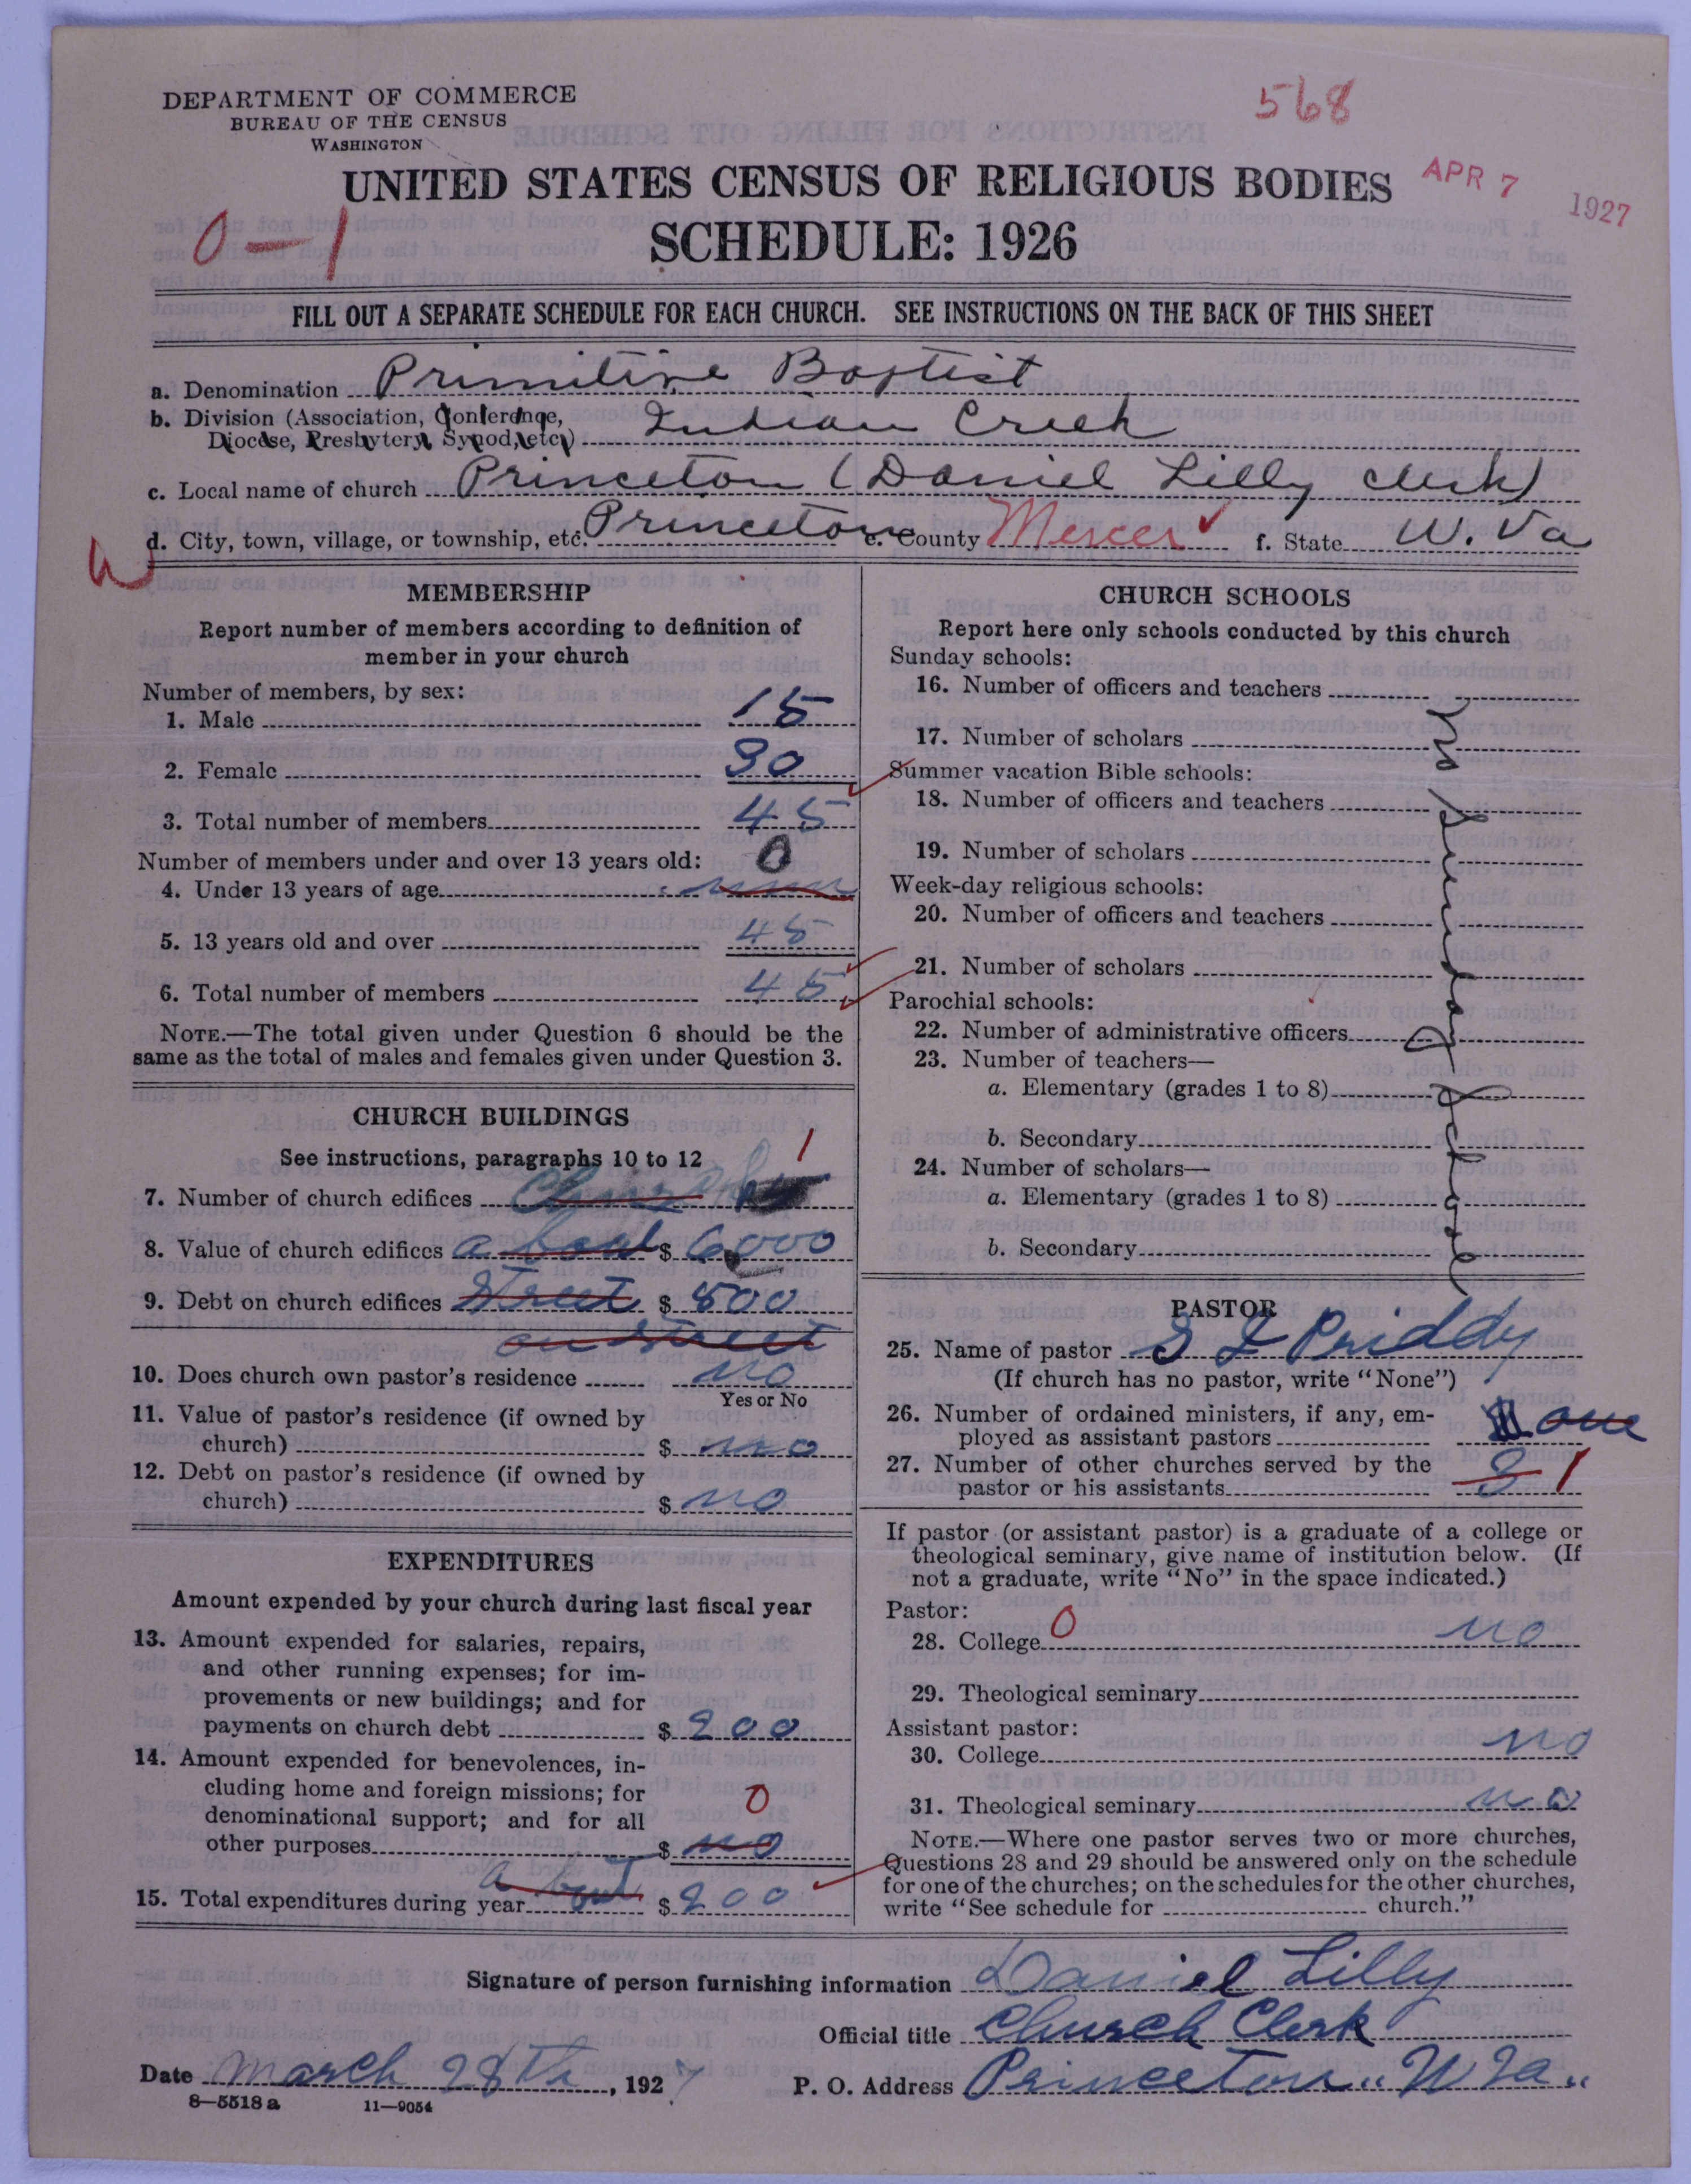 DEPARTMENT OF COMMERCE
BUREAU OF THE CENSUS
WASHINGTON
568
UNITED STATES CENSUS OF RELIGIOUS BODIES
APR 7 1927
0-1
SCHEDULE: 1926
FILL OUT A SEPARATE SCHEDULE FOR EACH CHURCH. SEE INSTRUCTIONS ON THE BACK OF THIS SHEET
a. Denomination Primitive Baptist
b. Division (Association, Conference,
Diocese, Presbytery, Synod, etc.) Indian Creek
c. Local name of church Princeton (Daniel Lilly clerk)
d. City, town, village, or township, etc. Princeton e. County Mercer f. State W. Va
MEMBERSHIP
Report number of members according to definition of
member in your church
Number of members, by sex:
1. Male 15
2. Female 30
3. Total number of members 45
Number of members under and over 13 years old: 0
4. Under 13 years of age
5. 13 years old and over 45
6. Total number of members 45
NOTE.—The total given under Question 6 should be the
same as the total of males and females given under Question 3.
CHURCH BUILDINGS
See instructions, paragraphs 10 to 12 1
7. Number of church edifices
8. Value of church edifices $ 6000
9. Debt on church edifices Street $ 500
on street
10. Does church own pastor's residence no
Yes or No
11. Value of pastor's residence (if owned by
church) $ no
12. Debt on pastor's residence (if owned by
church) $ no
EXPENDITURES
Amount expended by your church during last fiscal year
13. Amount expended for salaries, repairs,
and other running expenses; for im-
provements or new buildings; and for
payments on church debt $ 200
14. Amount expended for benevolences, in-
cluding home and foreign missions; for
denominational support; and for all 0
other purposes $ no
about
15. Total expenditures during year $ 200
CHURCH SCHOOLS
Report here only schools conducted by this church
Sunday schools:
16. Number of officers and teachers
17. Number of scholars
Summer vacation Bible schools:
18. Number of officers and teachers
19. Number of scholars
Week-day religious schools:
20. Number of officers and teachers
21. Number of scholars
Parochial schools:
22. Number of administrative officers
23. Number of teachers—
a. Elementary (grades 1 to 8)
b. Secondary
24. Number of scholars—
a. Elementary (grades 1 to 8)
b. Secondary
no Sunday School
PASTOR
25. Name of pastor S L Priddy
(If church has no pastor, write "None")
26. Number of ordained ministers, if any, em-
ployed as assistant pastors one
27. Number of other churches served by the
pastor or his assistants 3 1
If pastor (or assistant pastor) is a graduate of a college or
theological seminary, give name of institution below. (If
not a graduate, write "No" in the space indicated.)
Pastor:
28. College 0 no
29. Theological seminary
Assistant pastor:
30. College no
31. Theological seminary no
NOTE.—Where one pastor serves two or more churches,
Questions 28 and 29 should be answered only on the schedule
for one of the churches; on the schedules for the other churches,
write "See schedule for church."
Signature of person furnishing information Daniel Lilly
Official title Church Clerk
Date March 28th, 1927 P. O. Address Princeton W Va
8—5518 a 11—9054